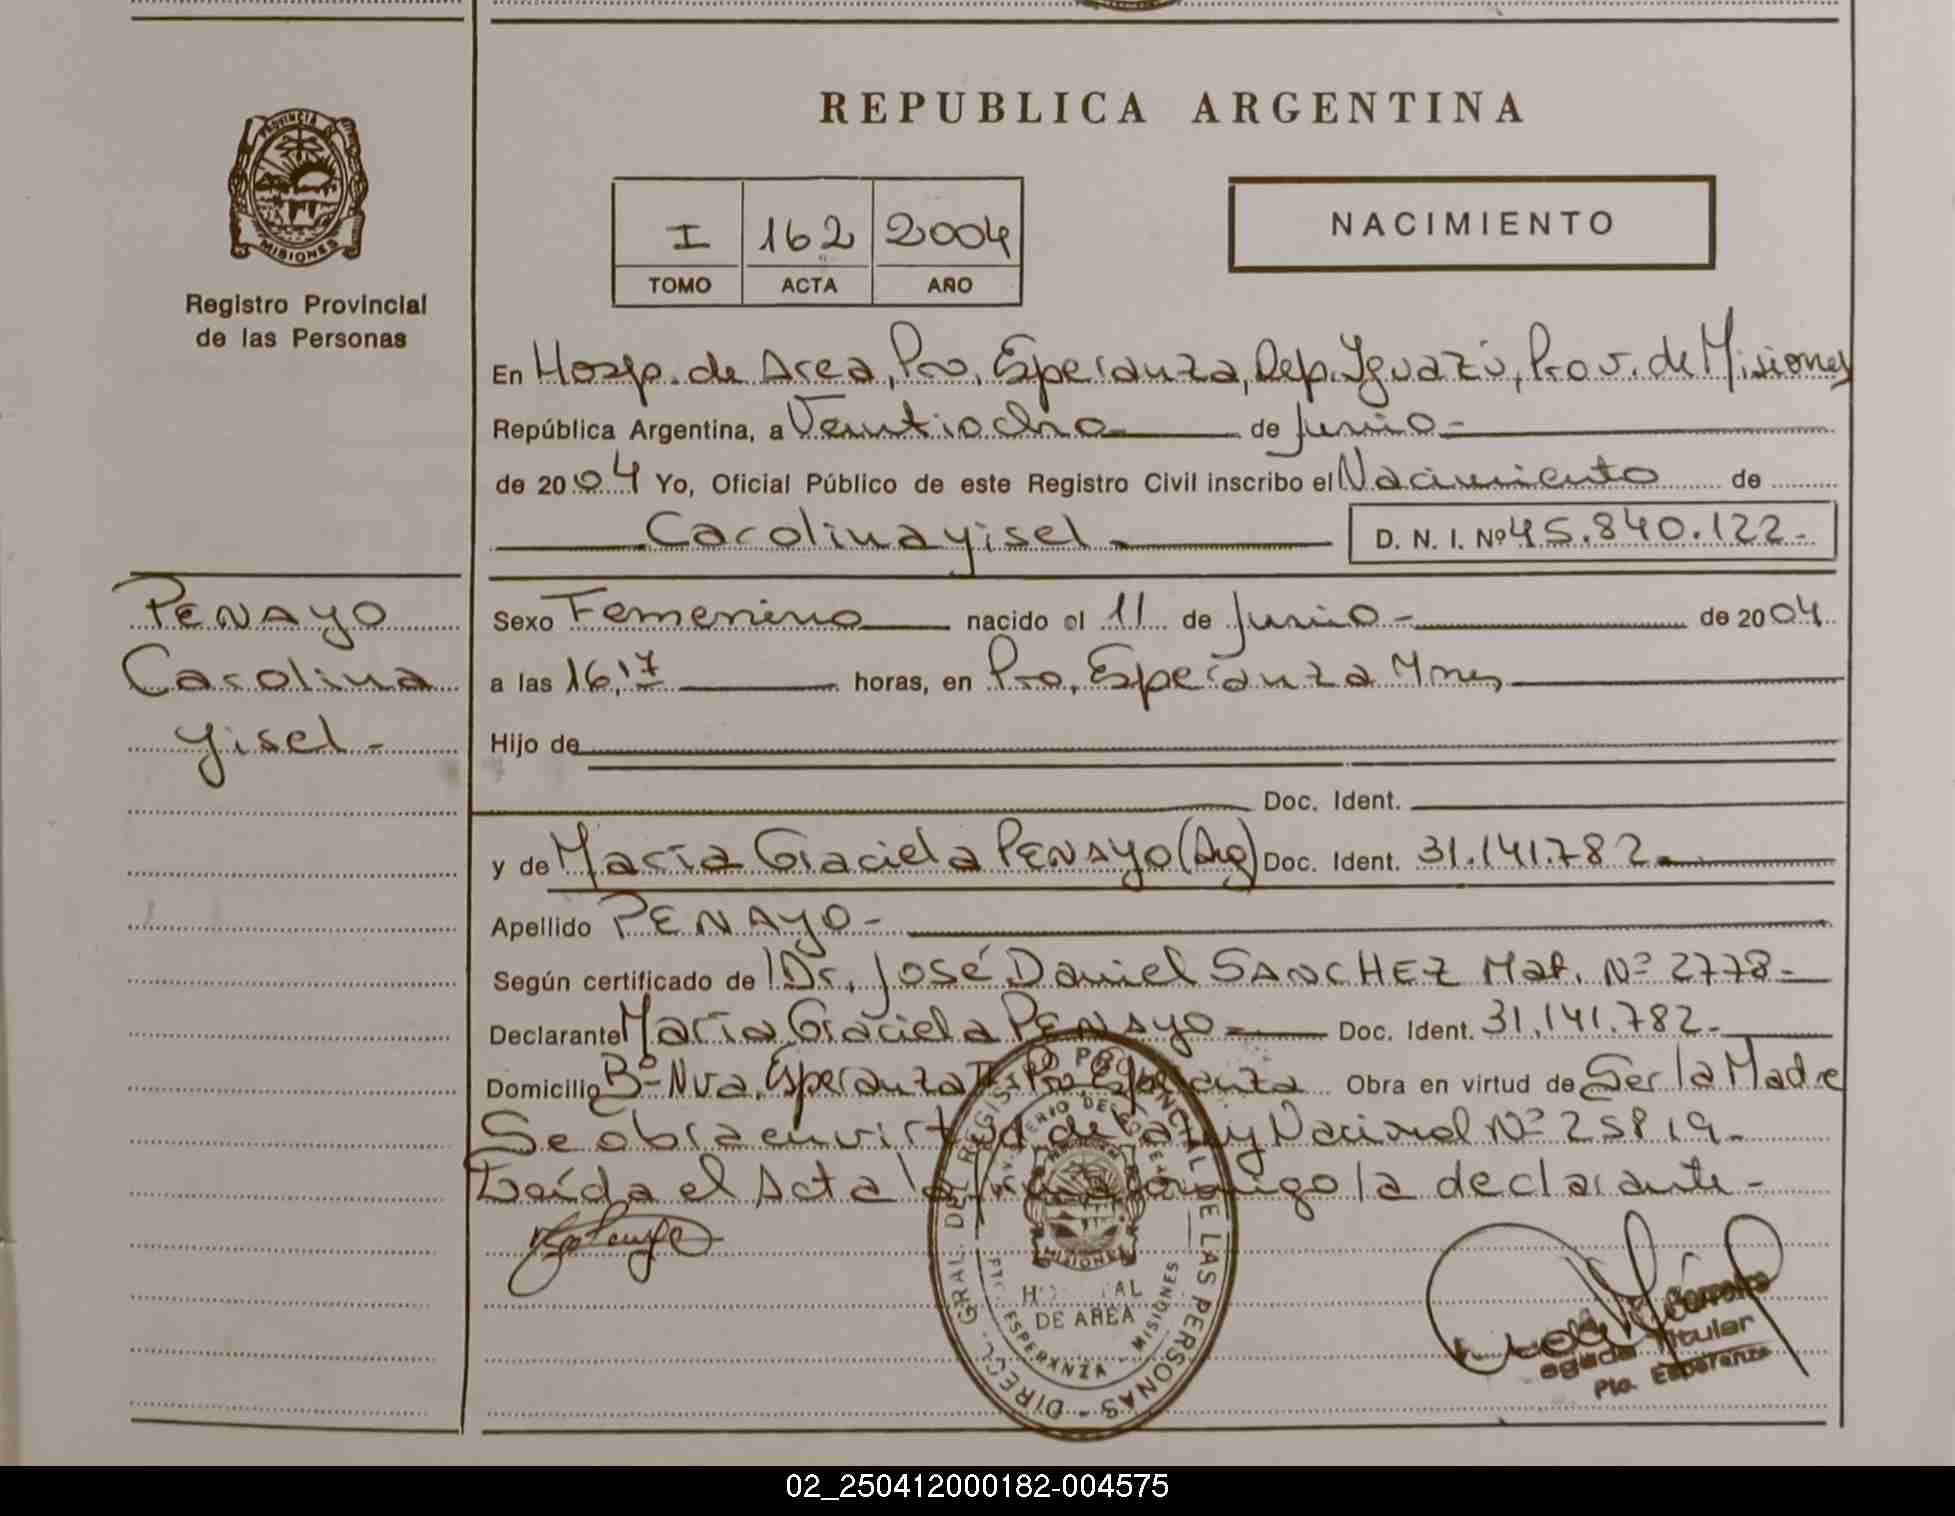 REPUBLICA ARGENTINA
PROVINCIA DE
MISIONES
Registro Provincial
de las Personas
I 162 2004
TOMO ACTA AÑO
NACIMIENTO
En Hosp. de Area, Pto. Esperanza, Dep. Iguazú, Prov. de Misiones
República Argentina, a Veintiocho de Junio-
de 2004 Yo, Oficial Público de este Registro Civil inscribo el Nacimiento de
Carolina yisel - D. N. I. Nº 45.840.122-
PENAYO
Carolina
yisel-
Sexo Femenino nacido el 11 de Junio - de 2004
a las 16,17 horas, en Pto. Esperanza Mnes
Hijo de
Doc. Ident.
y de María Graciela PENAYO (Arg) Doc. Ident. 31.141.782.
Apellido PENAYO-
Según certificado de Dr. José Daniel SANCHEZ Mat. Nº 2778-
Declarante María Graciela PENAYO- Doc. Ident. 31.141.782-
Domicilio Bº Nva. Esperanza II Pto Esperanza Obra en virtud de Ser la Madre
Se obra en virtud de la Ley Nacional Nº 25819-
Leída el Acta la firma conmigo la declarante-
DIRECC. GRAL. DEL REGISTRO PROVINCIAL DE LAS PERSONAS -
MISIONES
DE AREA
ESPERANZA - MISIONES
Titular
Pto. Esperanza
02_250412000182-004575